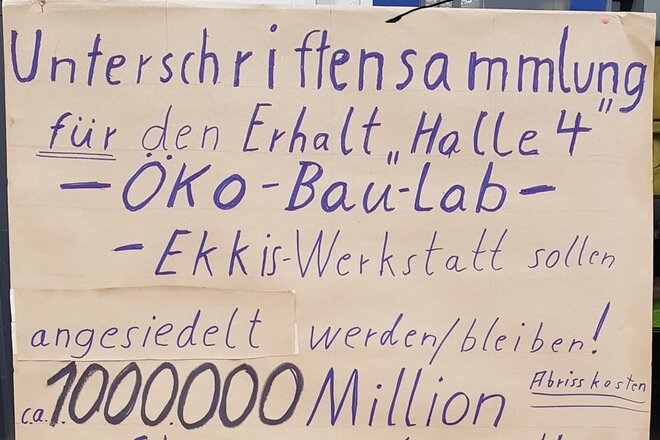 Unterschriftensammlung
für den Erhalt „Halle 4"
– ÖKo-Bau-Lab –
– Ekkis-Werkstatt sollen
angesiedelt werden/bleiben!
c.a. 1000.000 Million Abrisskosten